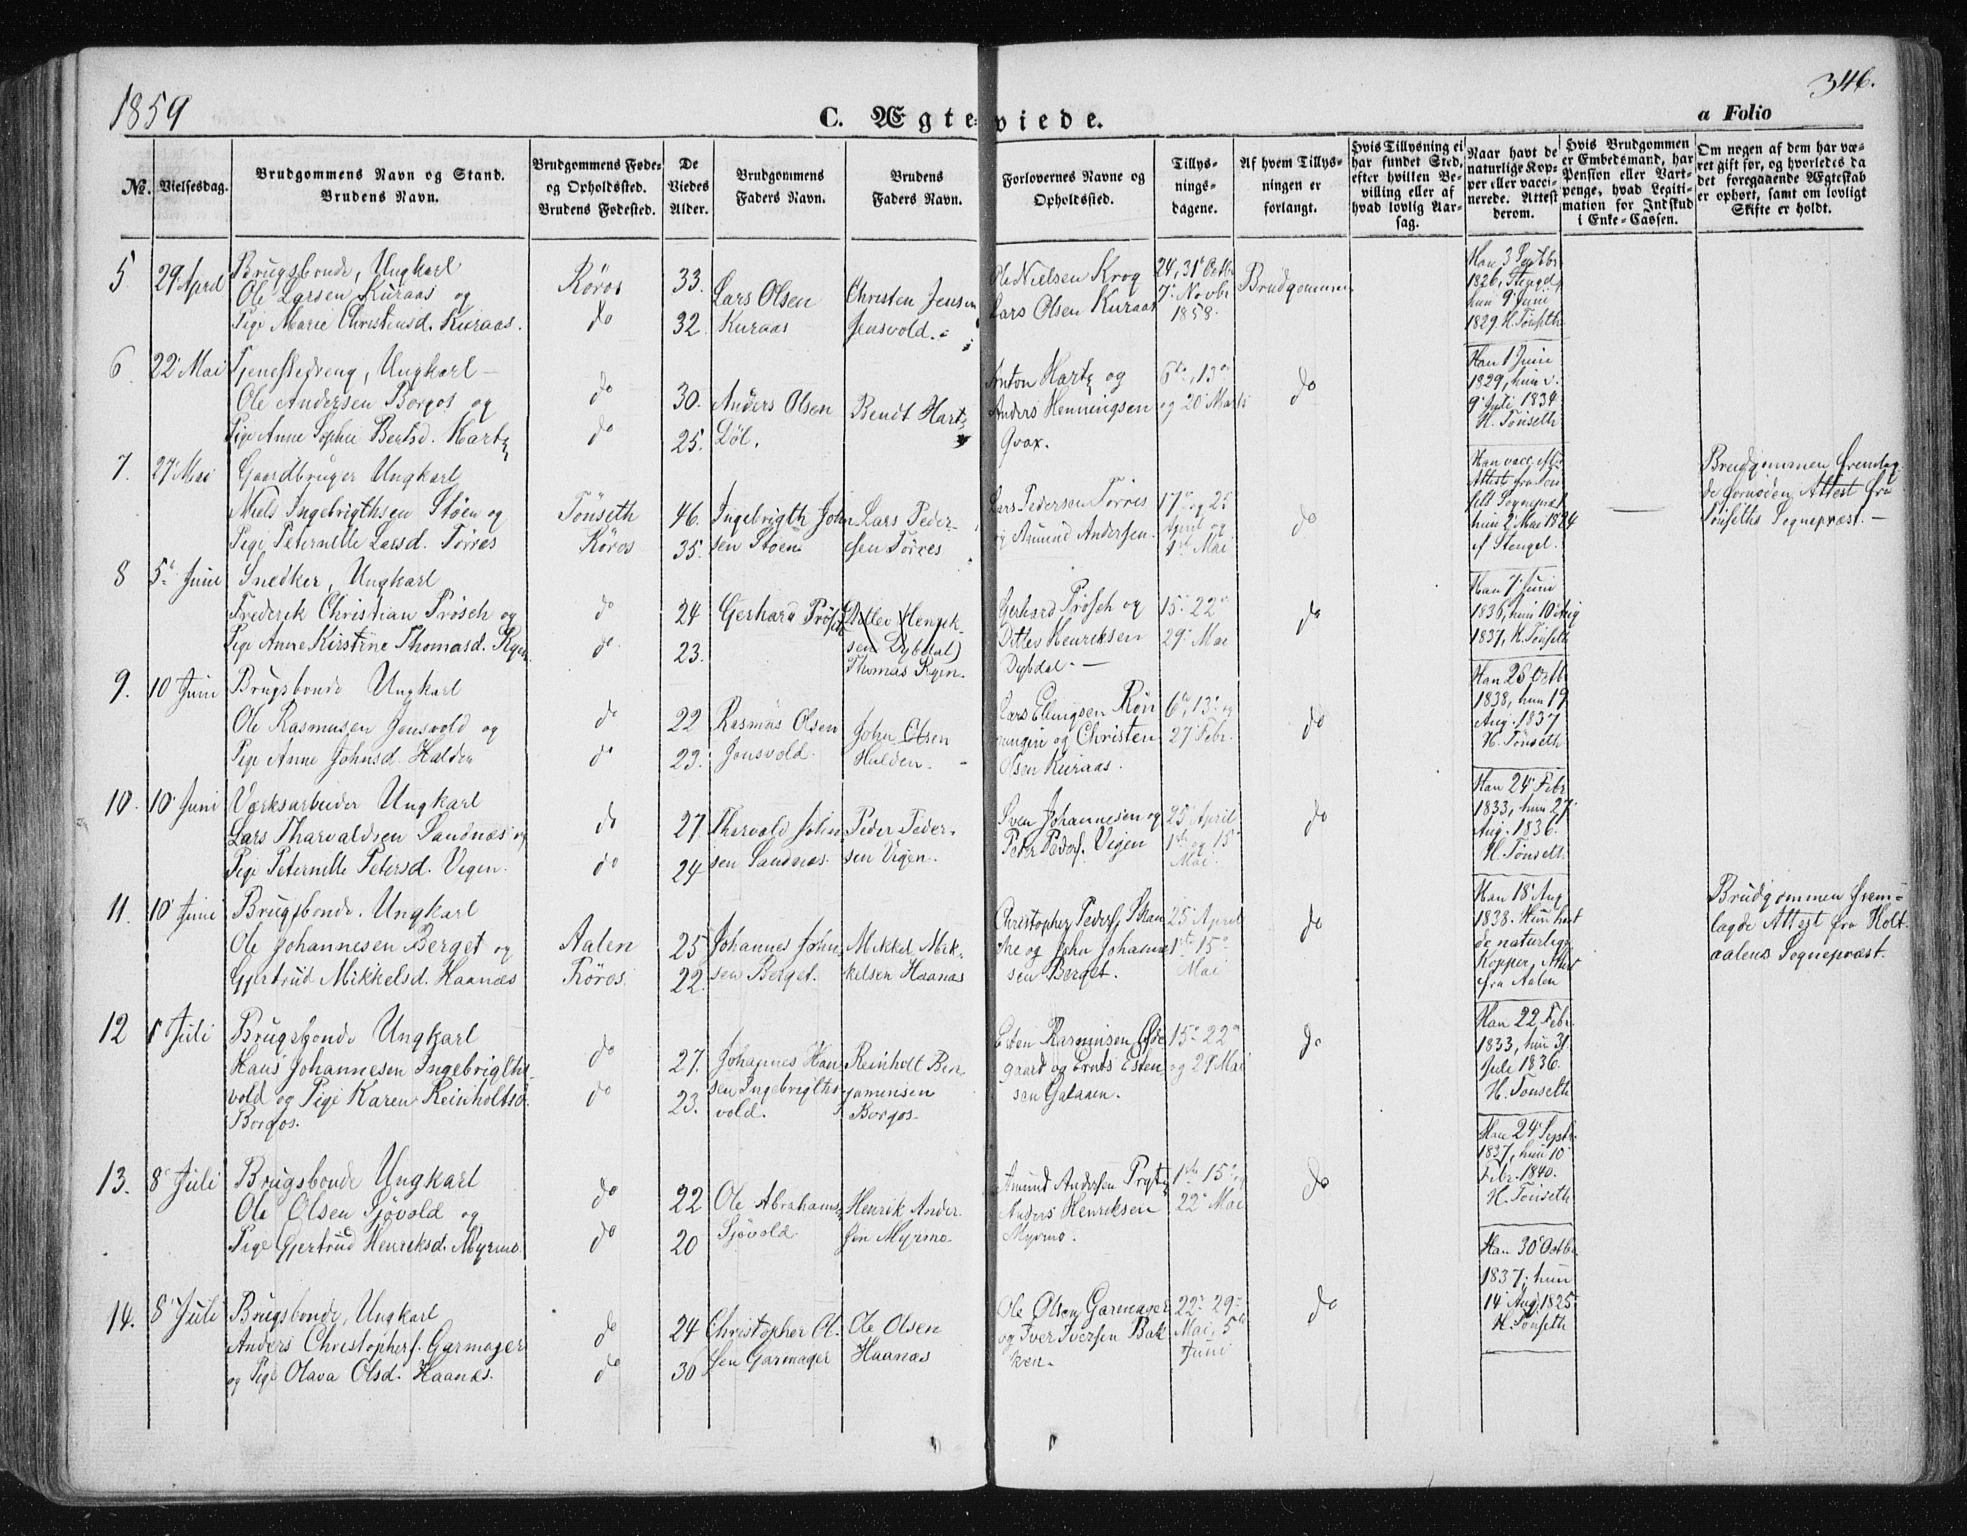 1859
346.
C. Ægteviede.
a Folio
No.
Vielsesdag.
Brudgommens Navn og Stand.
Brudens Navn.
Brudgommens Føde-
og Opholdssted.
Brudens Fødested.
De
Viedes
Alder.
Brudgommens
Faders Navn.
Brudens
Faders Navn.
Forlovernes Navne og
Opholdssted.
Tillys-
nings-
dagene.
Af hvem Tillys-
ningen er
forlangt.
Hvis Tillysning ei
har fundet Sted,
efter hvilken Be-
villing eller af
hvad lovlig Aar-
sag.
Naar havt de
naturlige Kop-
per eller vacci-
nerede. Attest
derom.
Hvis Brudgommen
er Embedsmand, har
Pension eller Vart-
penge, hvad Legiti-
mation for Indskud
i Enke-Cassen.
Om nogen af dem har væ-
ret gift før, og hvorledes da
det foregaaende Ægteskab
er ophørt, samt om lovligt
Skifte er holdt.
5
29 April
Brugsbonde, Ungkarl
Ole Larsen Kuraas og
Pige Marie Christensd. Kuraas.
Røros
do
33.
32.
Lars Olsen
Kuraas
Christen Jensen
Jensvold.
Ole Nielsen Krog
Lars Olsen Kuraas
24, 31 Octb.
7 Novbr
1858.
Brudgommen
Han 3 Septbr
1826, Stengel,
hun 9 Juni
1829. H. Tønseth
6
22 Mai
Tjenestedreng, Ungkarl
Ole Andersen Borgos og
Pige Anne Sophie Bertsd. Hartz
do
do
30.
25.
Anders Olsen
Løl.
Bendt Hartz
Anton Hartz og
Anders Henningsen
Qvax.
6te, 13de
og 20 Marts
do
Han 1 Juni
1829, hun d.
9 Juli 1834
H. Tønseth
7.
27 Mai
Gaardbruger Ungkarl
Niels Ingebrigthsen Støen og
Pige Peternelle Larsd. Torres
Tønseth
Røros
46.
35.
Ingebrigth John
sen Støen
Lars Peder-
sen Torres
Lars Pedersen Torres
og Amund Andersen.
17de og 25
April og
1ste Mai
do
Han vacc. Attest fra Tøn-
seth Sognepræst
hun 2 Mai 1824
af Stengel.
Brudgommen fremlag-
de fornøden Attest fra
Tønseths Sognepræst.
8
5te Juni
Snedker, Ungkarl
Frederik Christian Prøsch og
Pige Anne Kirstine Thomasd. Ryen
do
do
24
23.
Gerhard Prøsch
Ditlev Henrik-
sen Dybdal)
Thomas Ryen.
Gerhard Prøsch og
Ditlev Henriksen
Dybdal.
15de 22de
29de Mai
do
Han 7 Juni
1836, hun 10 Aug
1837, H. Tønseth
9.
10 Juni
Brugsbonde Ungkarl
Ole Rasmusen Jensvold og
Pige Anne Johnsd Halden
do
do
22
23.
Rasmus Olsen
Jensvold.
John Olsen
Halden.
Lars Ellingsen Røn
ningen og Christen
Olsen Kuraas.
6te, 13de og
27 Febr.
do
Han 25 Octb
1838, hun 19
Aug. 1837
H. Tønseth
10.
10 Juni
Værksarbeider Ungkarl
Lars Tharvaldsen Sandnæs og
Pige Peternelle Petersd. Vigen.
do
do
27
24
Tharvald John
sen Sandnæs.
Peder Peder-
sen Vigen.
Sven Johannesen og
Peter Peders. Vigen
25 April
1ste og 15
Mai.
do
Han 24 Febr
1833, hun 27
Aug. 1836.
H. Tønseth
11.
10 Juni
Brugsbonde. Ungkarl
Ole Johannesen Berget og
Gjertrud Mikkelsd. Haanæs
Aalen
Røros
25
22.
Johannes John
sen Berget.
Mikkel Mik-
kelsen Haanæs
Christopher Peders. Skan
ke og John Johanne
sen Berget.
25 April
1ste 15de
Mai
do
Han 18 Aug
1838. Hun havt
de naturlige
Kopper, Attest
fra Aalen
Brudgommen frem-
lagde Attest fra Holt-
aalens Sognepræst.
12
1 Juli
Brugsbonde Ungkarl
Hans Johannesen Ingebrigths-
vold og Pige Karen Reinholtsd.
Borgos.
do
do
27.
23.
Johannes Han
sen Ingebrigths-
vold.
Reinholt Ben-
jaminsen
Borgos.
Esten Rasmusen Øde
gaard og Ernts Esten
sen Galaaen.
15de 22de
og 29 Mai
do
Han 22 Febr.
1833, hun 31
Juli 1836.
H. Tønseth
13.
8 Juli
Brugsbonde Ungkarl
Ole Olsen Sjøvold og
Pige Gjertrud Henriksd. Myrmo
do
do
22
20
Ole Abrahams.
Sjøvold.
Henrik Ander
sen Myrmo
Amund Andersen Prytz
Anders Henriksen
Myrmo.
1ste 15de og
22 Mai
do
Han 24 Septb.
1837, hun 10
Febr. 1840.
H. Tønseth
14.
8 Juli
Brugsbonde, Ungkarl
Anders Christophers. Garmager
og Pige Olava Olsd. Haanæs.
do
do
24
30
Christopher Ol-
sen Garmager
Ole Olsen
Haanæs
Ole Olsen Garmager
og Iver Iversen Bak
ken.
22de 29de
Mai, 5te
Juni
do
Han 30 Octb.
1837, hun
14 Aug 1825
H. Tønseth